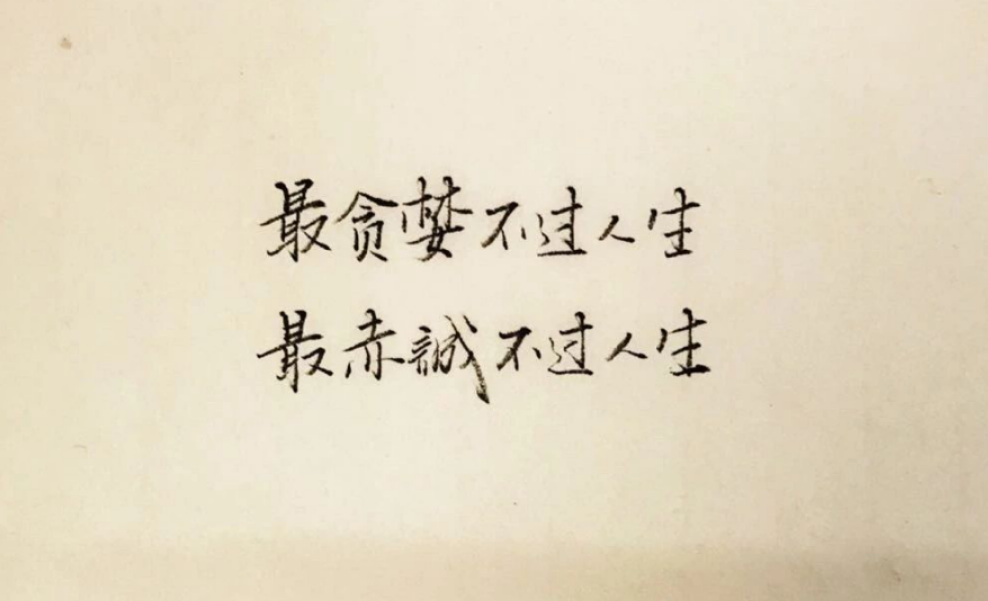 最贪婪不过人生
最赤誠不过人生